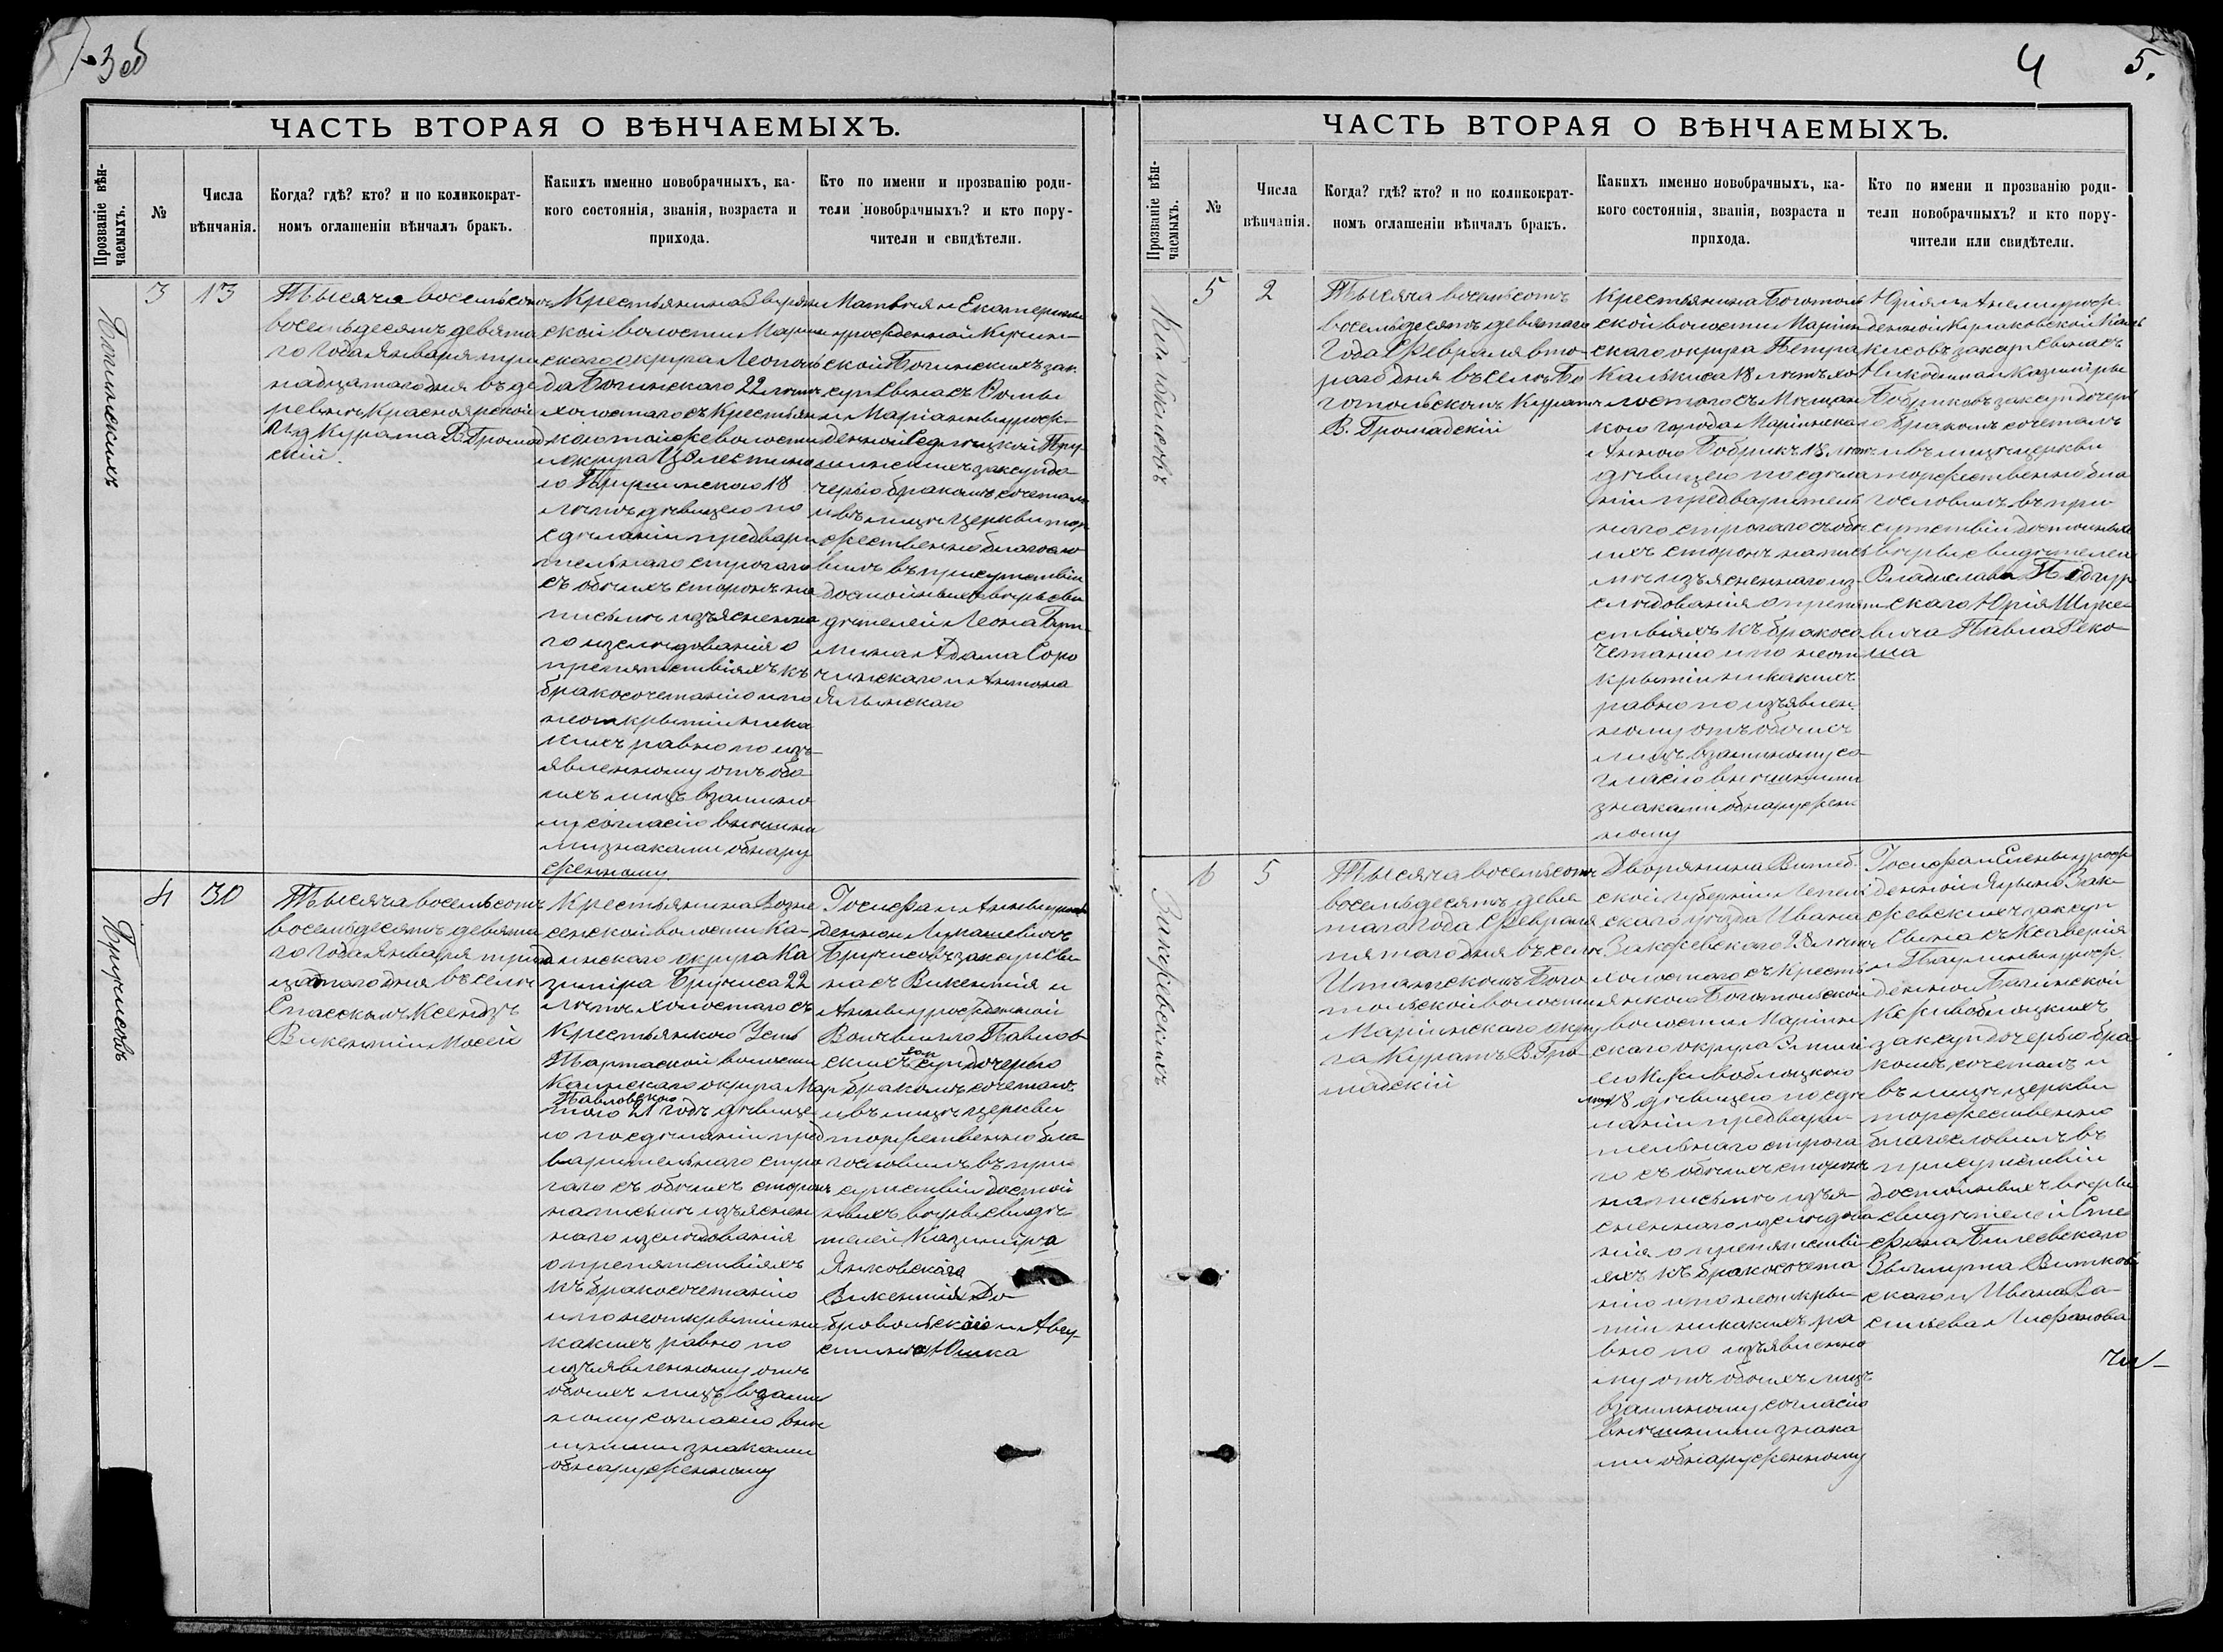 3 об
ЧАСТЬ ВТОРАЯ О ВѢНЧАЕМЫХЪ.
Прозваніе вѣн-
чаемыхъ.
№
Числа
вѣнчанія.
Когда? гдѣ? кто? и по коликократ-
номъ оглашеніи вѣнчалъ бракъ.
Какихъ именно новобрачныхъ, ка-
кого состоянія, званія, возраста и
прихода.
Кто по имени и прозванію роди-
тели новобрачныхъ? и кто пору-
чители и свидѣтели.
Богинскихъ
3
13
Тысяча восемьсотъ
восемьдесятъ девята
го года Января три
надцатаго дня въ де
ревнѣ Красноярской
Курата В Громад
скій.
Крестьянина
ской волости Маріин
скаго округа Леополь
да Богинскаго 22 лѣтъ
холостаго съ Крестьян
кою той же волости
и округа Целестино
ю 18
лѣтъ дѣвицею по
сдѣланіи предвари
тельнаго строгаго
съ обѣихъ сторонъ на
письмѣ изъясненна
го изслѣдованія о
препятствіяхъ къ
бракосочетанію и по
неоткрытіи ника
кихъ равно по изъ-
явленному отъ обо
ихъ лицъ взаимно
му согласію внѣшни
ми знаками обнару
женному.
Матвѣя и Екатерины
урожденной
ской Богинскихъ зак.
суп Сына съ Ѳомы
и Маріанны урож-
денной Седлецкой
шинскихъ зак суп до
черью бракомъ сочеталъ
и въ лицѣ Церкви тор
жественно благосло
вилъ въ присутствіи
достойныхъ вѣры сви
дѣтелей Леона
Адама Соро
чинскаго и Антона
Яльинскаго
Бричисовъ
4
30
Тысяча восемьсотъ
восемьдесятъ девята
го года Января трид
цатаго дня въ селѣ
Спасскомъ Ксендзъ
Викентій
Крестьянина Возне
сенской волости Ка-
инскаго округа Ка
зиміра Бричиса 22
лѣтъ холостаго съ
Крестьянкою Усть
Тартаской волости
Каинскаго округа Мар
Павловскою
тою 21 годъ дѣвице
ю по сдѣланіи пред
варительнаго стро
гаго съ обѣихъ сторонъ
на письмѣ изъяснен
наго изслѣдованія
о препятствіяхъ
къ бракосочетанію
и по неоткрытіи ни
какихъ равно по
изъявленному отъ
обоихъ лицъ взаим
ному согласію внѣ
шними знаками
обнаруженному
Іосифа и Анны урож
денной Лукашевичъ
Бричисовъ зак суп Сы-
на съ Викентія и
Анны урожденной
Войчвилло Павлов
скихъ зак суп дочерью
бракомъ сочеталъ
и въ лицѣ церкви
торжественно бла
гословилъ въ при
сутствіи достой
ныхъ вѣры свидѣ
телей Казиміра
Янковскаго
Викентія До
бровольскаго и Авгу
стина Юшка
4 5.
ЧАСТЬ ВТОРАЯ О ВѢНЧАЕМЫХЪ.
Прозваніе вѣн-
чаемыхъ.
№
Числа
вѣнчанія.
Когда? гдѣ? кто? и по коликократ-
номъ оглашеніи вѣнчалъ бракъ.
Какихъ именно новобрачныхъ, ка-
кого состоянія, званія, возраста и
прихода.
Кто по имени и прозванію роди-
тели новобрачныхъ? и кто пору-
чители или свидѣтели.
Калькисовъ
5
2
Тысяча восемьсотъ
восемьдесятъ девятаго
года Февраля вто-
раго дня въ селѣ Бо
готольскомъ Куратъ
В. Громадскій
Крестьянина Боготоль
ской волости Маріин
скаго округа Петра
Калькиса 18 лѣтъ хо
лостаго съ Мѣщан
кою города Маріинска
Анною Бобрикъ 18 лѣтъ
дѣвицею по сдѣла
ніи предваритель
наго строгаго съ обѣ
ихъ сторонъ на пись
мѣ изъясненнаго из-
слѣдованія о препят
ствіяхъ къ бракосо
четанію и по неот
крытіи никакихъ
равно по изъявлен
ному отъ обоихъ
лицъ взаимному со
гласію внѣшними
знаками обнаружен
ному
Юрія и Анелли урож
денной Кулаковской Каль
кисовъ зак суп Сына съ
Никодима и Казимиры
Бобриковъ зак суп дочерью
бракомъ сочеталъ
и въ лицѣ церкви
торжественно бла
гословилъ въ при
сутствіи достойныхъ
вѣры свидѣтелей
Владислава
скаго Юрія
вича Павла Реко
ша
Закржевскихъ
6
5
Тысяча восемьсотъ
восемьдесятъ девя
таго года Февраля
пятаго дня въ селѣ
Итатскомъ Бого
тольской волости
Маріинскаго окру
га Куратъ В. Гро
мадскій
Дворянина Витеб
ской губерніи Лепель
скаго уѣзда Ивана
Закржевскаго 28 лѣтъ
холостаго съ Кресть
янкою Боготольской
волости Маріин
скаго округа Эмилі
ею Кривоблоцкою
лѣтъ 18 дѣвицею по сдѣ
ланіи предвари-
тельнаго строга
го съ обѣихъ сторонъ
на письмѣ изъя-
сненнаго изслѣдова
нія о препятстві
яхъ къ бракосочета
нію и по неоткры
тіи никакихъ ра
вно по изъявленно
му отъ обоихъ лицъ
взаимному согласію
внѣшними знака
ми обнаруженному
Іосифа и Елены урож
денной Яцына Зак-
ржевскихъ зак суп
Сына съ Ксаверія
и Паулины урож
денной Багинской
Кривоблоцкихъ
зак суп дочерью бра
комъ сочеталъ и
въ лицѣ церкви
торжественно
благословилъ въ
присутствіи
достойныхъ вѣры
свидѣтелей Сте
фана Билевскаго
Зыгмунта Витков
скаго и Ивана Ва-
сильева Лифанова